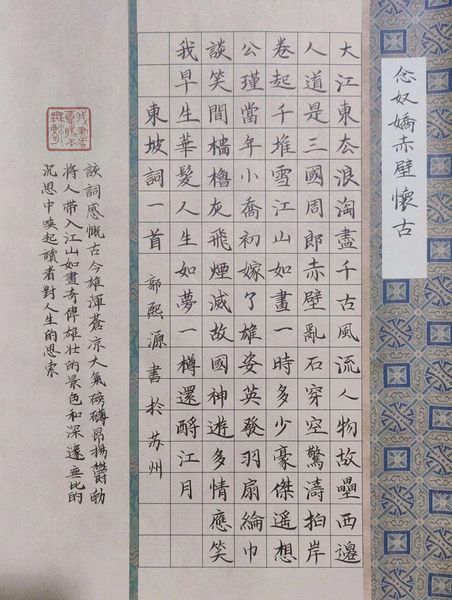 念奴嬌赤壁懷古
大江東去浪淘盡千古風流人物故壘西邊
人道是三國周郎赤壁亂石穿空驚濤拍岸
卷起千堆雪江山如畫一時多少豪傑遥想
公瑾當年小喬初嫁了雄姿英發羽扇綸巾
談笑間檣櫓灰飛煙滅故國神遊多情應笑
我早生華髮人生如夢一樽還酹江月
東坡詞一首 郭熙源書於苏州
該詞感慨古今雄渾蒼凉大氣磅礴昂揚鬱勃
將人帶入江山如畫奇偉雄壯的景色和深邃無比的
沉思中喚起讀者對人生的思索